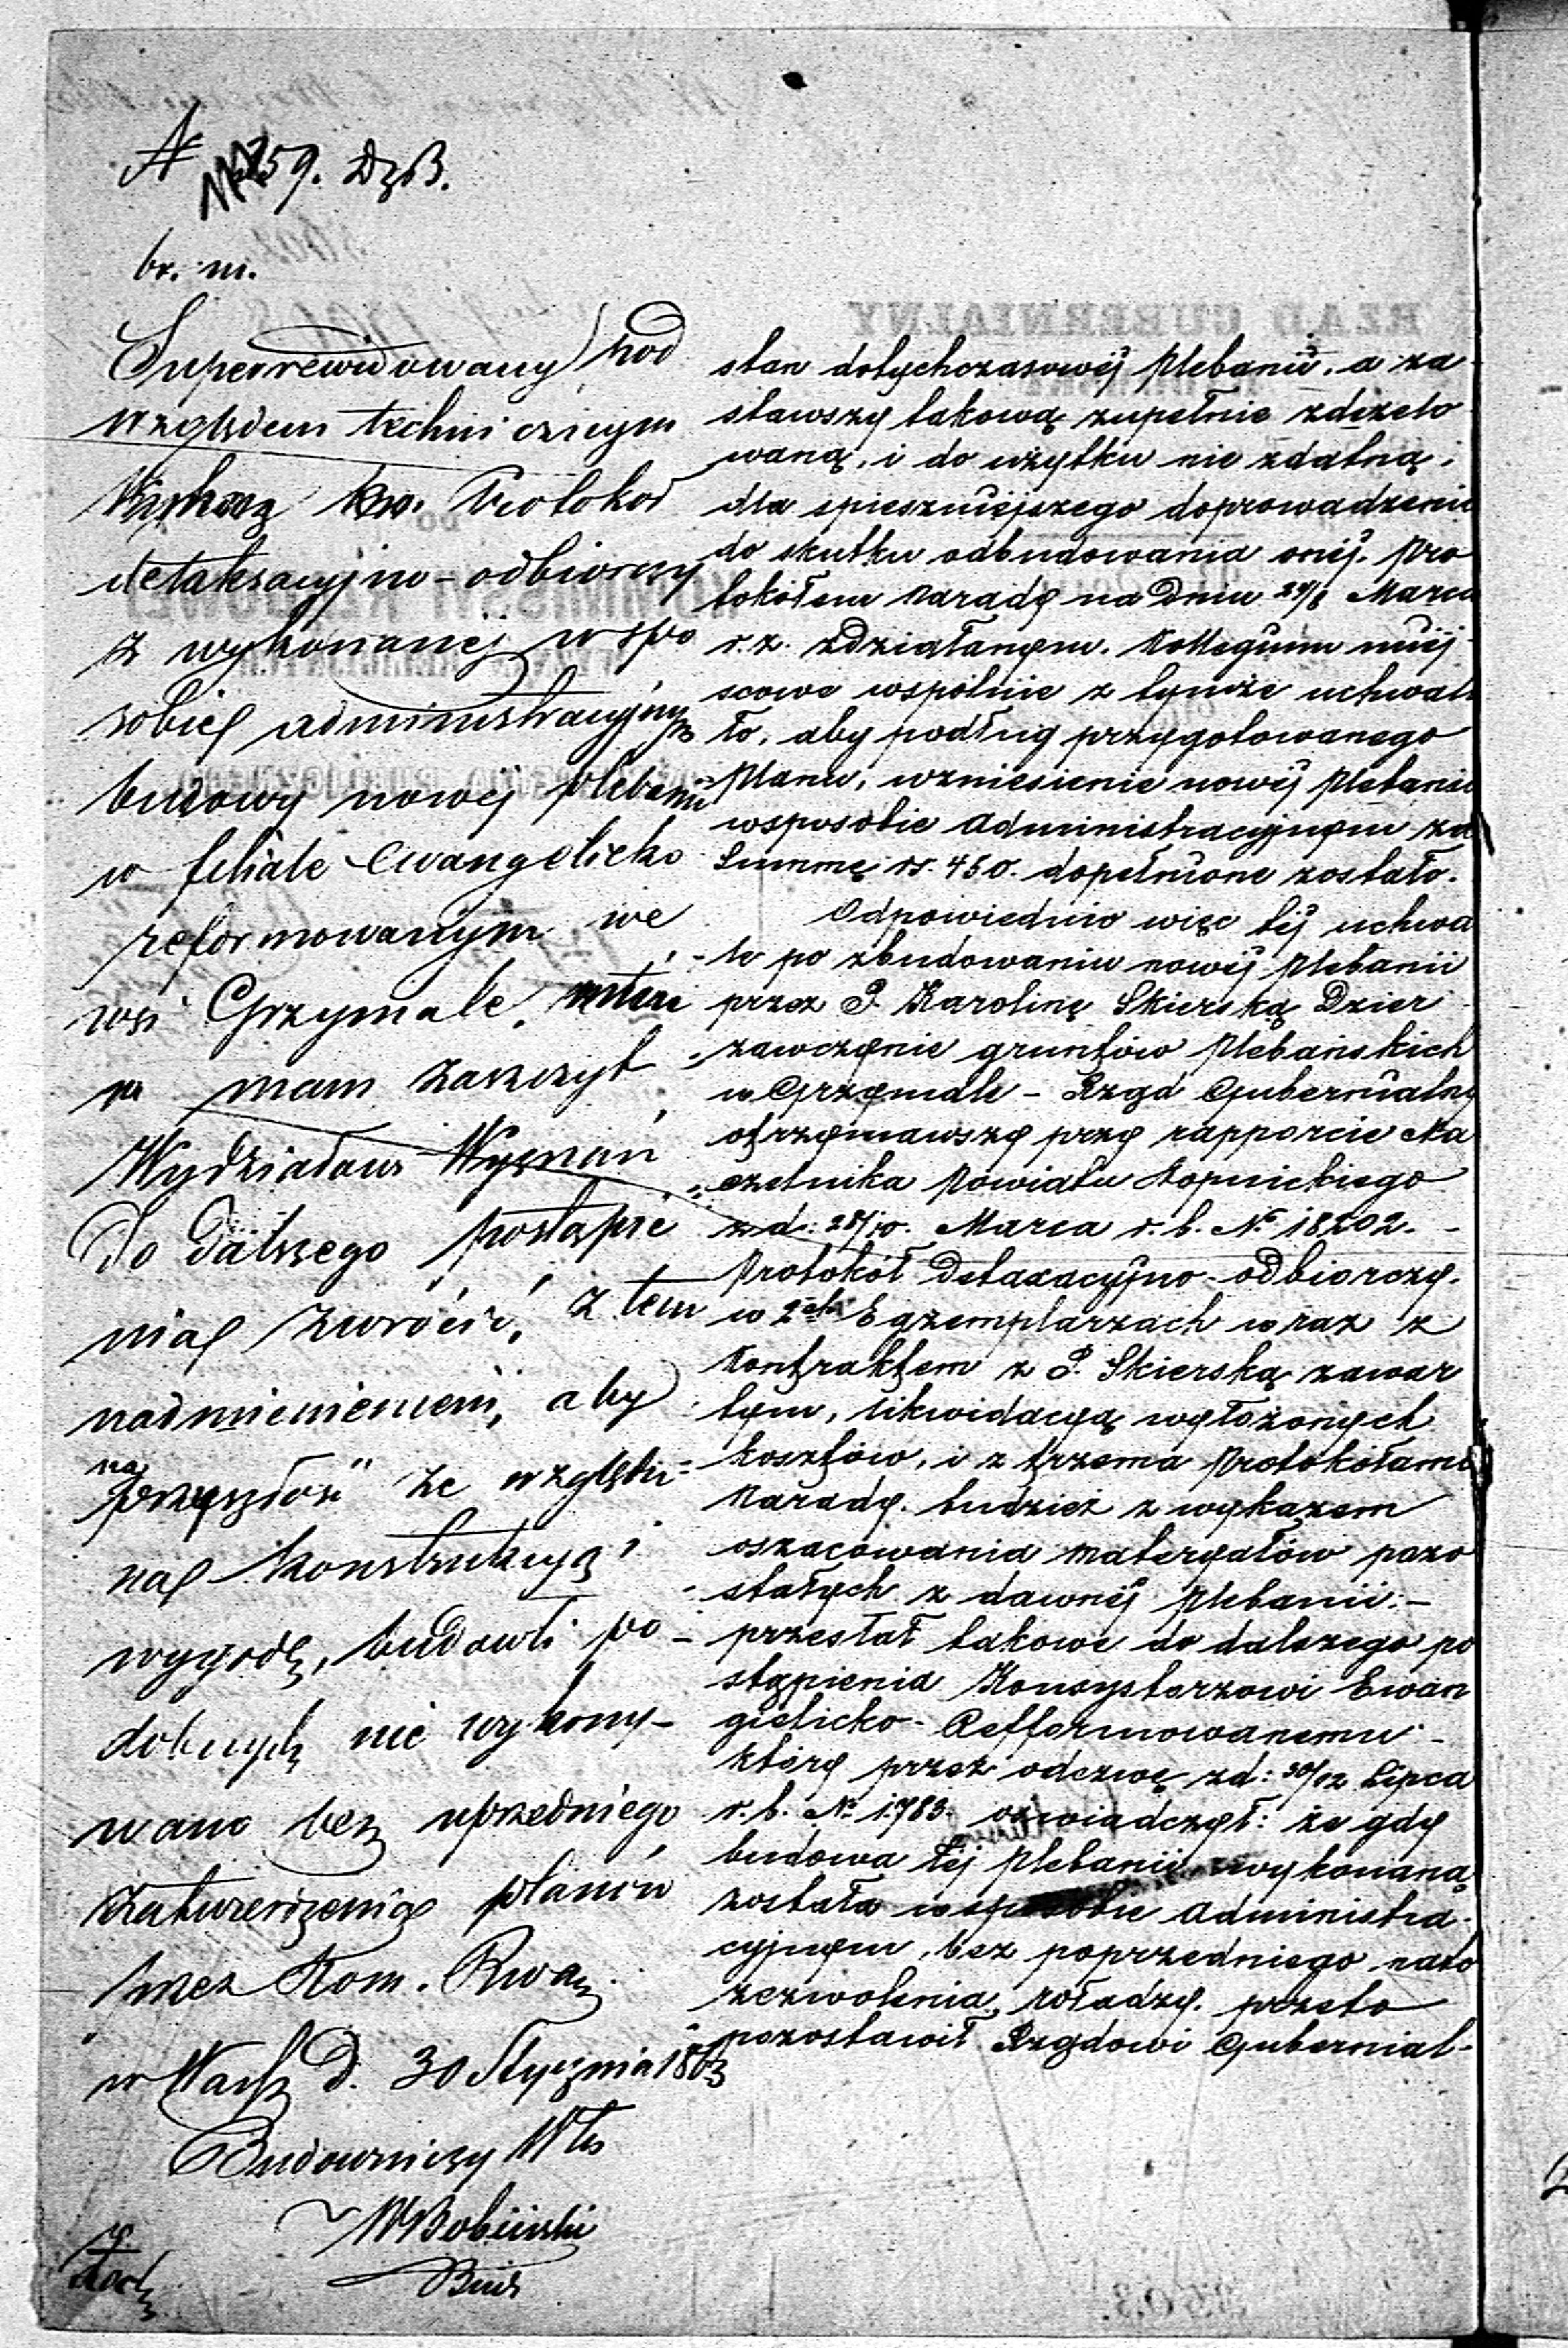 N 11259. Dz. B.
br. m.
Superrewidowany pod
względem technicznym
Protokoł
detaksacyjno-odbiorczy
z wykonanej w spo
sobie administracyjnym
budowy nowéj plebanii
w filiale Ewangelicko
reformowanym we
wsi Grzymale,
mam zaszczyt
Wydziałowi Wyznań
do dalszego postąpie
nia zwrócić, z tem
nadmienieniem, aby
na przyszłość ze względu
na konstrukcyą i
wygodę, budowli po-
dobnych nie wykony-
wano bez uprzedniego
zatwierdzenia planów
przez Kom. Rząd.
w Warsz. d. 30 Stycznia 1863
Budowniczy
W Bobiński
stan dotychczasowéj plebanii, a za
stawszy takową zupełnie zdezelo
waną, i do użytku nie zdatną,
dla spieszniejszego doprowadzenia
do skutku odbudowania onéj, Pro
tokółem Narady na dniu 29/8 Marca
r. z. zdziałanym, Kollegium miej
scowe wspólnie z tymże uchwali
ło, aby podług przygotowanego
Planu, wzniesienie nowéj plebanii
w sposobie administracyjnym za
Summę rs. 450. dopełnione zostało.
Odpowiednio więc téj uchwa
le po zbudowaniu nowéj Plebanii
przez P. Karolinę Skierską Dzier
zawczynie gruntów Plebańskich
w Grzymale – Rząd Gubernialny
otrzymawszy przy rapporcie Na
czelnika Powiatu Stopnickiego
z d: 28/10. Marca r. b. No 18202. –
Protokół Detaxacyjno-odbiorczy.
w 2ch Egzemplarzach wraz z
Kontraktem z P. Skierską zawar
tym, likwidacyą wyłożonych
kosztów, i z trzema Protokółami
Narady. budzież z wykazem
oszacowania materyałów pozo
stałych z dawnéj Plebanii: –
przesłał takowe do dalszego po
stąpienia Konsystorzowi Ewan
gielicko-Refformowanemu –
który przez odezwę z d: 30/12 Lipca
r. b. No 1783. oświadczył: że gdy
budowa téj Plebanii wykonaną
została w sposobie administra-
cyjnym, bez poprzedniego na to
zezwolenia władzy. przeto
pozostawił Rządowi Gubernial-